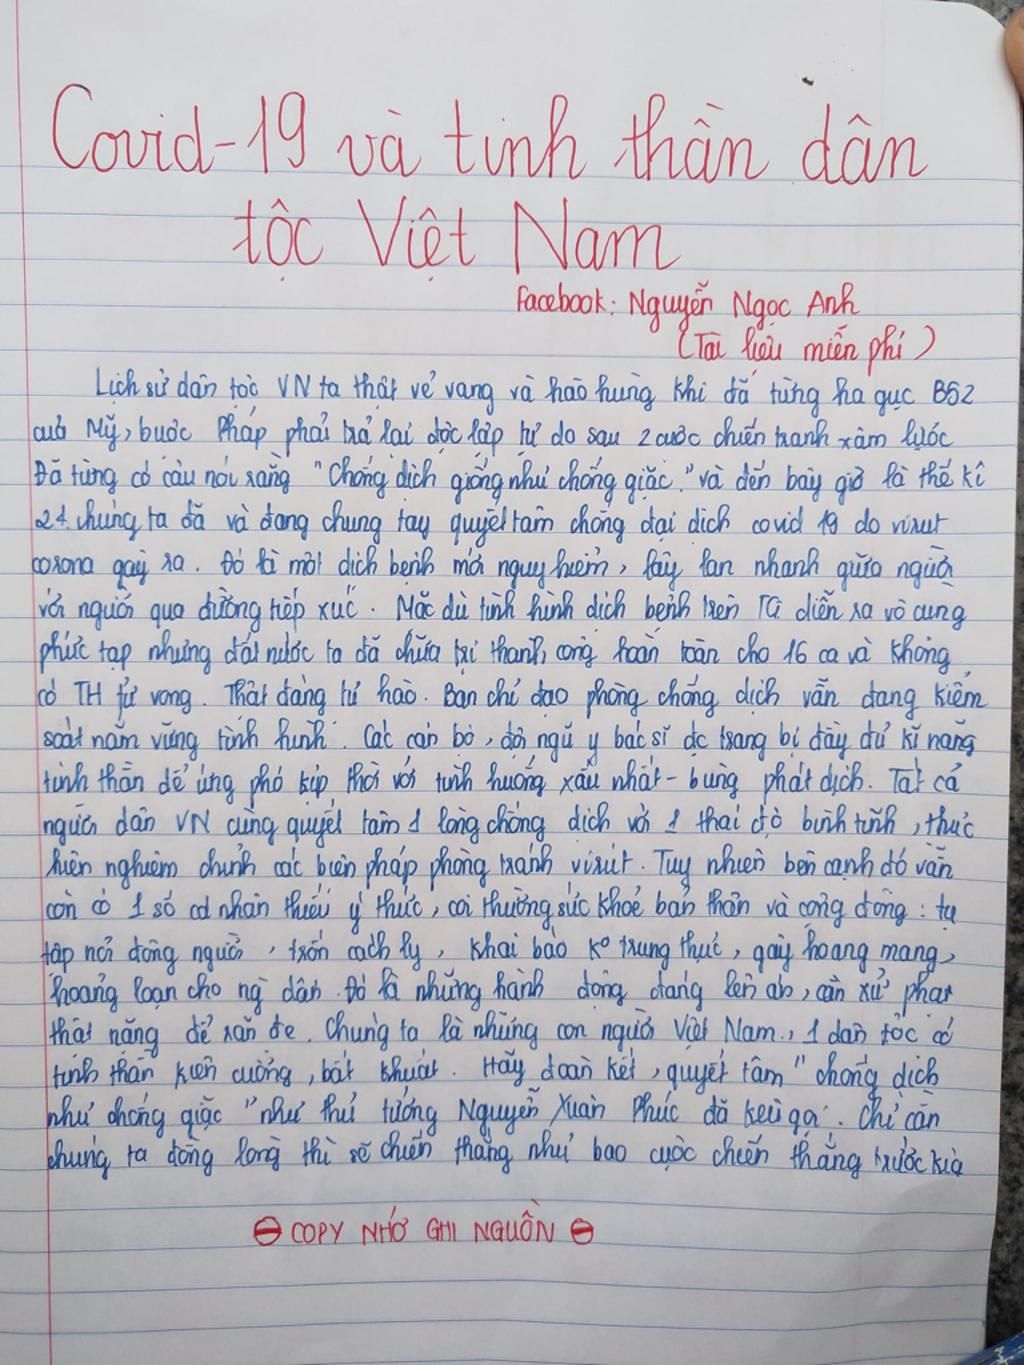 Covid-19 và tinh thần dân
tộc Việt Nam
Facebook: Nguyễn Ngọc Anh
(Tài liệu miễn phí)
Lịch sử dân tộc VN ta thật vẻ vang và hào hùng khi đã từng hạ gục B52
của Mỹ, buộc Pháp phải trả lại độc lập tự do sau 2 cuộc chiến tranh xâm lược
Đã từng có câu nói rằng "Chống dịch giống như chống giặc." và đến bây giờ là thế kỉ
21. chúng ta đã và đang chung tay quyết tâm chống đại dịch covid 19 do virut
corona gây ra. Đó là một dịch bệnh mới nguy hiểm, lây lan nhanh giữa người
với người qua đường tiếp xúc. Mặc dù tình hình dịch bệnh trên TG diễn ra vô cùng
phức tạp nhưng đất nước ta đã chữa trị thành công hoàn toàn cho 16 ca và không
có TH tử vong. Thật đáng tự hào. Ban chỉ đạo phòng chống dịch vẫn đang kiểm
soát nắm vững tình hình. Các cán bộ, đội ngũ y bác sĩ đc trang bị đầy đủ kĩ năng
tinh thần để ứng phó kịp thời với tình huống xấu nhất - bùng phát dịch. Tất cả
người dân VN cùng quyết tâm 1 lòng chống dịch với 1 thái độ bình tĩnh, thực
hiện nghiêm chỉnh các biện pháp phòng tránh virút. Tuy nhiên bên cạnh đó vẫn
còn có 1 số cá nhân thiếu ý thức, coi thường sức khoẻ bản thân và cộng đồng: tụ
tập nơi đông người, trốn cách ly, khai báo k° trung thực, gây hoang mang,
hoảng loạn cho ng dân. Đó là những hành động đáng lên án, cần xử phạt
thật nặng để răn đe. Chúng ta là những con người Việt Nam, 1 dân tộc có
tinh thần kiên cường, bất khuất. Hãy đoàn kết, quyết tâm "chống dịch
như chống giặc" như thủ tướng Nguyễn Xuân Phúc đã kêu gọi. Chỉ cần
chúng ta đồng lòng thì sẽ chiến thắng như bao cuộc chiến thắng trước kia
COPY NHỚ GHI NGUỒN